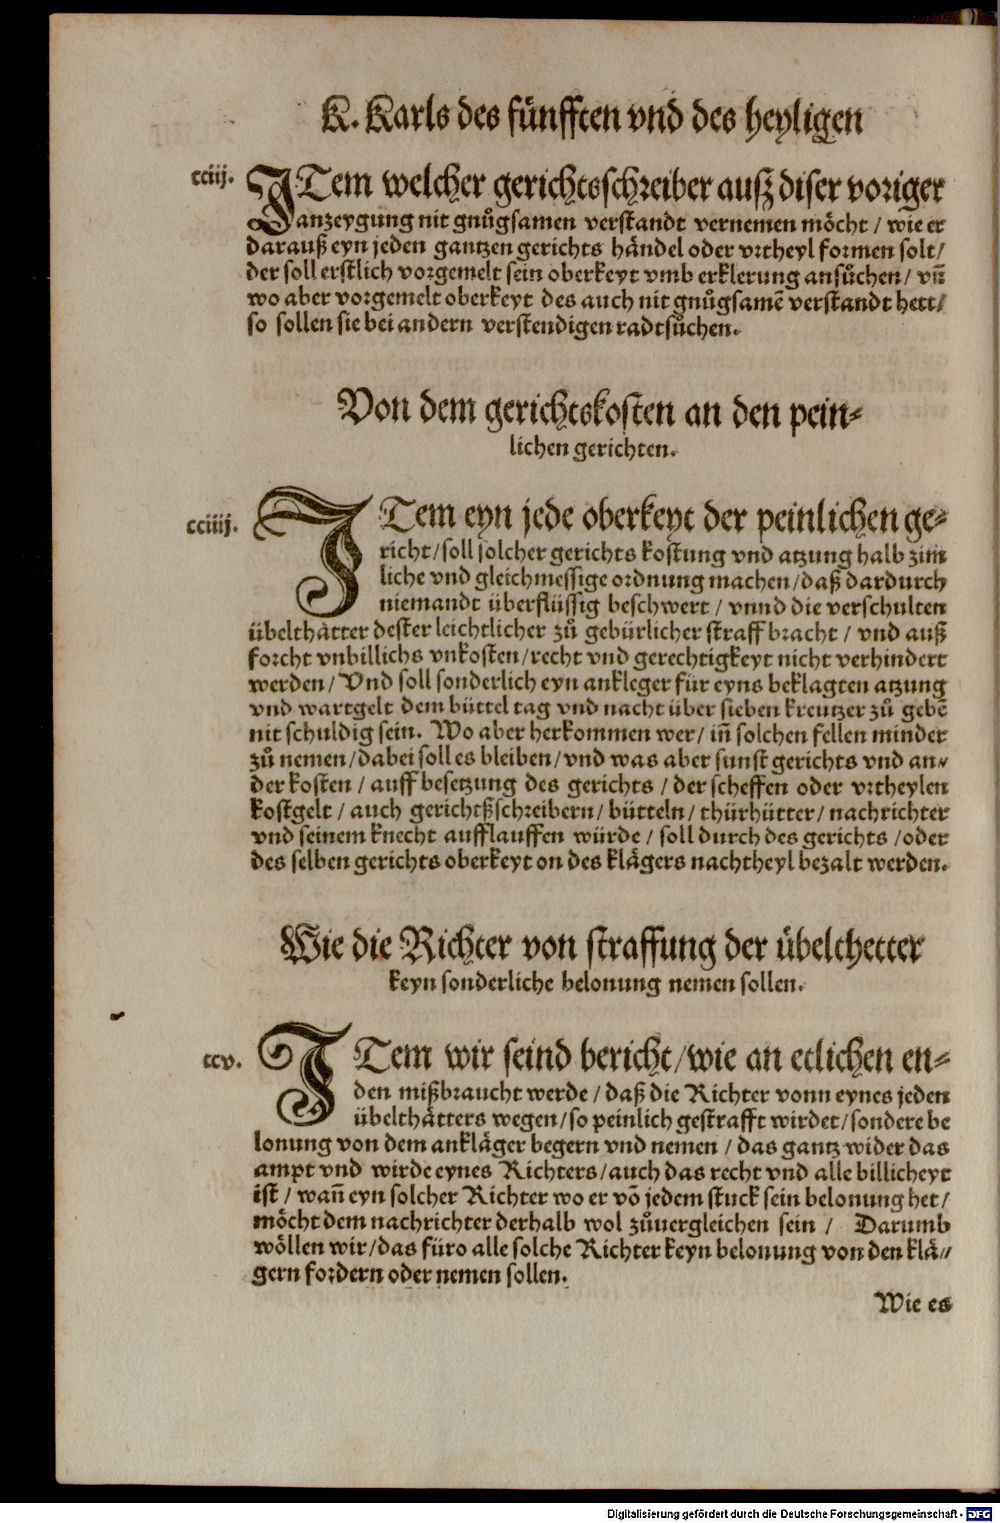 K. Karls des fünfften vnd des heyligen
cciij. ITem welcher gerichtsschreiber ausz diser voriger
anzeygung nit gnůgsamen verstandt vernemen möcht / wie er
darauß eyn jeden gantzen gerichts händel oder vrtheyl formen solt /
der soll erstlich vorgemelt sein oberkeyt vmb erklerung ansůchen / vñ
wo aber vorgemelt oberkeyt des auch nit gnůgsamē verstandt hett /
so sollen sie bei andern verstendigen radtsůchen.
Von dem gerichtskosten an den pein⸗
lichen gerichten.
cciiij. ITem eyn jede oberkeyt der peinlichen ge⸗
richt / soll solcher gerichts kostung vnd atzung halb zim
liche vnd gleichmessige ordnung machen / daß dardurch
niemandt überflüssig beschwert / vnnd die verschulten
übelthätter dester leichtlicher zů gebürlicher straff bracht / vnd auß
forcht vnbillichs vnkosten / recht vnd gerechtigkeyt nicht verhindert
werden / Vnd soll sonderlich eyn ankleger für eyns beklagten atzung
vnd wartgelt dem büttel tag vnd nacht über sieben kreutzer zů gebē
nit schuldig sein. Wo aber herkommen wer / iñ solchen fellen minder
zů nemen / dabei soll es bleiben / vnd was aber sunst gerichts vnd an⸗
der kosten / auff besetzung des gerichts / der scheffen oder vrtheylen
kostgelt / auch gerichtßschreibern / bütteln / thürhütter / nachrichter
vnd seinem knecht aufflauffen würde / soll durch des gerichts / oder
des selben gerichts oberkeyt on des klägers nachtheyl bezalt werden.
Wie die Richter von straffung der übelthetter
keyn sonderliche belonung nemen sollen.
ccv. ITem wir seind bericht / wie an etlichen en⸗
den mißbraucht werde / daß die Richter vonn eynes jeden
übelthätters wegen / so peinlich gestrafft wirdet / sondere be
lonung von dem ankläger begern vnd nemen / das gantz wider das
ampt vnd wirde eynes Richters / auch das recht vnd alle billicheyt
ist / wañ eyn solcher Richter wo er vō jedem stuck sein belonung het /
möcht dem nachrichter derhalb wol zůuergleichen sein / Darumb
wöllen wir / das füro alle solche Richter keyn belonung von den klä⸗
gern fordern oder nemen sollen.
Wie es
Digitalisierung gefördert durch die Deutsche Forschungsgemeinschaft - DFG